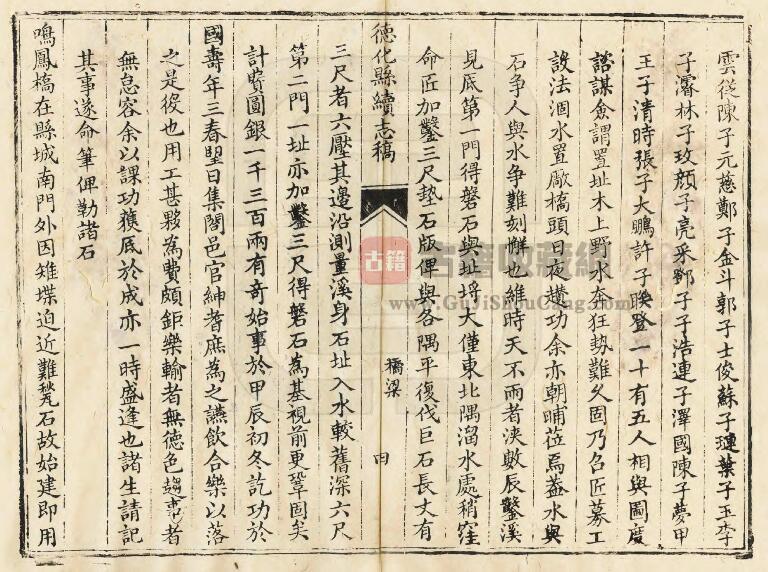 雲從陳子元慈鄭子金斗郭子士俊蘇子璉葉子玉李
子濬林子玫顏子亮采鄧子子浩連子澤國陳子夢甲
王子清時張子大鵬許子暎登一十有五人相與圖度
諮謀僉謂置址木上野水奔狂勢難久固乃召匠募工
設法涸水置廠橋頭日夜趲功余亦朝晡莅焉蓋水與
石爭人與水爭難刻懈也維時天不雨者浹數辰鑿溪
見底第一門得磐石與址埓大僅東北隅溜水處稍窪
命匠加鑿三尺墊石版俾與各隅平復伐巨石長丈有
德化縣續志稿
橋梁
四
三尺者六壓其邊沿測量溪身石址入水較舊深六尺
第二門一址亦加鑿三尺得磐石為基視前更鞏固矣
計費圓銀一千三百兩有奇始事於甲辰初冬訖功於
國壽年三春朢日集閤邑官紳耆庶為之讌飲合樂以落
之是役也用工甚夥為費頗鉅樂輸者無德色趨事者
無怠容余以課功獲底於成亦一時盛逢也諸生請記
其事遂命筆俾勒諸石
鳴鳳橋在縣城南門外因雉堞迫近難甃石故始建即用
古籍
古籍收藏網
www.GuJiShouCang.com